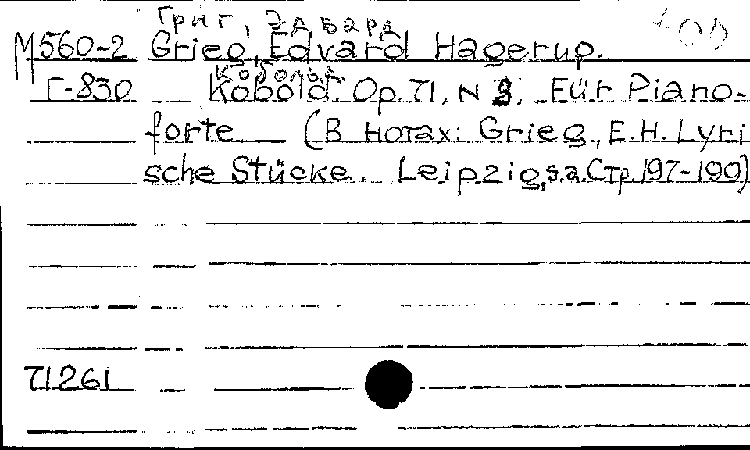 Григ, Эдвард
М560-2 Grieg, Edvard Hagerup.
Кобольд
Г-830 Kobold. Op. 71, N 3. Für Piano-
forte (В нотах: Grieg, E.H. Lyri
sche Stücke. Leipzig, s.a. Стр. 197-199)
71261